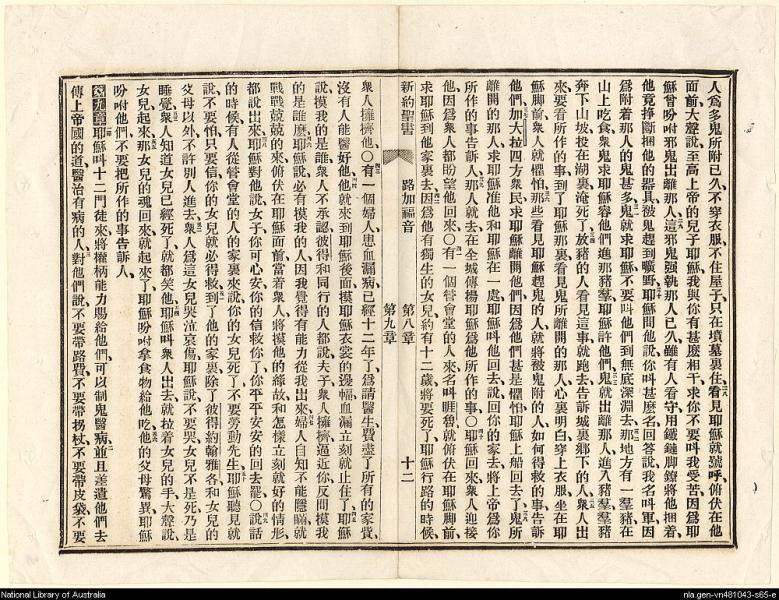 人爲多鬼所附已久不穿衣服不住屋子只在墳墓裏住看見耶穌就號呼俯伏在他
面前大聲說至高上帝的兒子耶穌我與你有甚麽相干求你不要叫我受苦因爲耶
穌曾吩咐邪鬼出離那人這邪鬼强執那人已久雖有人看守用鐵鏈脚鐐將他捆着
他竟掙斷捆他的器具被鬼趕到曠野耶穌問他說你叫甚麽名回答說我名叫軍因
爲附着那人的鬼甚多鬼就求耶穌不要叫他們到無底深淵去那地方有一羣豬在
山上吃食衆鬼求耶穌容他們進那豬羣耶穌許他們鬼就出離那人進入豬羣羣豬
奔下山坡投在湖裏淹死了放豬的人看見這事就跑去告訴城裏鄉下的人衆人出
來要看所作的事到了耶穌那裏看見鬼所離開的那人心裏明白穿上衣服坐在耶
穌脚前衆人就懼怕那些看見耶穌趕鬼的人就將被鬼附的人如何得救的事告訴
他們加大拉四方衆民求耶穌離開他們因爲他們甚是懼怕耶穌上船回去了鬼所
離開的那人求耶穌准他和耶穌在一處耶穌叫他回去說回你的家去將上帝爲你
所作的事告訴人那人就去在全城傳揚耶穌爲他所作的事〇耶穌回來衆人迎接
他因爲衆人都盼望他回來〇有一個管會堂的人來名叫睚魯就俯伏在耶穌脚前
求耶穌到他家裏去因爲他有獨生的女兒約有十二歲將要死了耶穌行路的時候
新約聖書 路加福音 第八章 第九章 十二
衆人擁擠他〇有一個婦人患血漏病已經十二年了爲請醫生費盡了所有的家貲
沒有人能醫好他他就來到耶穌後面摸耶穌衣裳的邊幅血漏立刻就止住了耶穌
說摸我的是誰衆人不承認彼得和同行的人都說夫子衆人擁擠逼近你反問摸我
的是誰麽耶穌說必有摸我的人因我覺得有能力從我出來婦人自知不能隱瞞就
戰戰兢兢的來俯伏在耶穌面前當着衆人將摸他的緣故和怎樣立刻就好的情形
都說出來耶穌對他說女子你可心安你的信救了你平平安安的回去罷〇說話
的時候有人從管會堂的人的家裏來說你的女兒死了不要勞動先生耶穌聽見就
說不要怕只要信你的女兒就必得救到了他的家裏除了彼得約翰雅各和女兒的
父母以外不許別人進去衆人爲這女兒哭泣哀傷耶穌說不要哭女兒不是死乃是
睡覺衆人知道女兒已經死了就都笑他耶穌叫衆人出去就拉着女兒的手大聲說
女兒起來那女兒的魂回來就起來了耶穌吩咐拿食物給他吃他的父母驚異耶穌
吩咐他們不要把所作的事告訴人
第九章耶穌叫十二門徒來將權柄能力賜給他們可以制鬼醫病並且差遣他們去
傳上帝國的道醫治有病的人對他們說不要帶路費不要帶拐杖不要帶皮袋不要
National Library of Australia
nla.gen-vn481043-s65-e